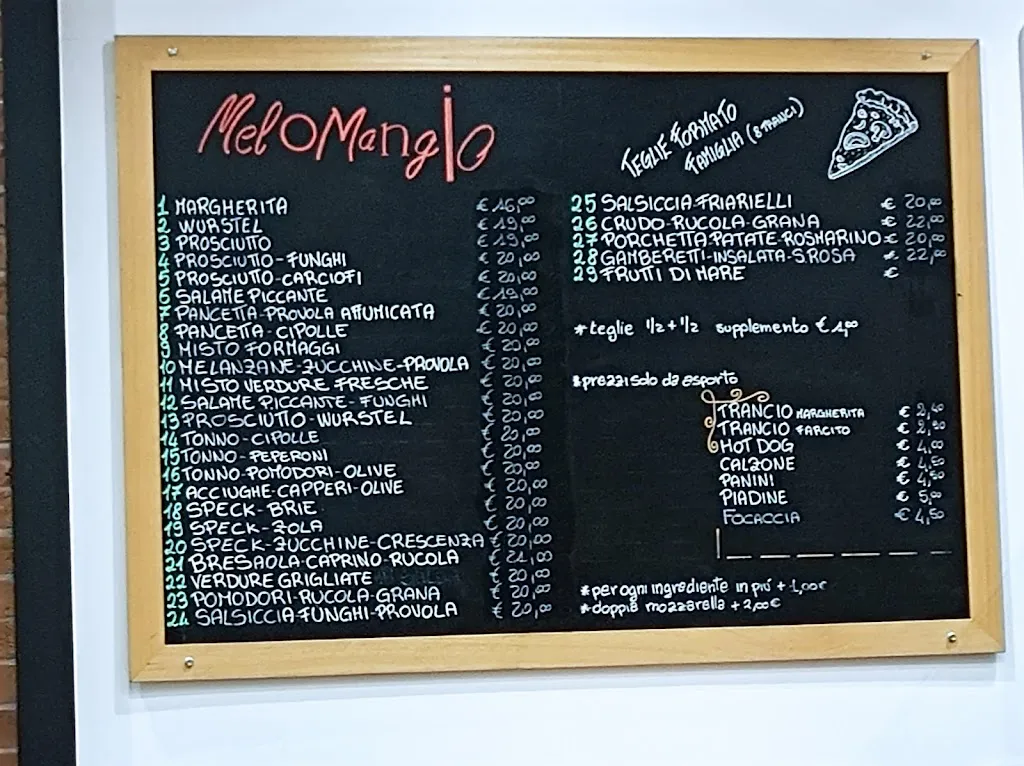 MeloMangio
1 MARGHERITA € 16,00
2 WURSTEL € 19,00
3 PROSCIUTTO € 19,00
4 PROSCIUTTO-FUNGHI € 20,00
5 PROSCIUTTO-CARCIOFI € 20,00
6 SALAME PICCANTE € 19,00
7 PANCETTA-PROVOLA AFFUMICATA € 20,00
8 PANCETTA-CIPOLLE € 20,00
9 MISTO FORMAGGI € 20,00
10 MELANZANE-ZUCCHINE-PROVOLA € 20,00
11 MISTO VERDURE FRESCHE € 20,00
12 SALAME PICCANTE-FUNGHI € 20,00
13 PROSCIUTTO-WURSTEL € 20,00
14 TONNO-CIPOLLE € 20,00
15 TONNO-PEPERONI € 20,00
16 TONNO-POMODORI-OLIVE € 20,00
17 ACCIUGHE-CAPPERI-OLIVE € 20,00
18 SPECK-BRIE € 20,00
19 SPECK-ZOLA € 20,00
20 SPECK-ZUCCHINE-CRESCENZA € 20,00
21 BRESAOLA-CAPRINO-RUCOLA € 21,00
22 VERDURE GRIGLIATE € 20,00
23 POMODORI-RUCOLA-GRANA € 20,00
24 SALSICCIA-FUNGHI-PROVOLA € 20,00
TEGLIE FORMATO
FAMIGLIA (8 TRANCI)
25 SALSICCIA-FRIARIELLI € 20,00
26 CRUDO-RUCOLA-GRANA € 22,00
27 PORCHETTA-PATATE-ROSMARINO € 20,00
28 GAMBERETTI-INSALATA-S.ROSA € 22,00
29 FRUTTI DI MARE €
*teglie 1/2+1/2 supplemento € 1,00
*prezzi solo da asporto
TRANCIO MARGHERITA € 2,40
TRANCIO FARCITO € 2,90
HOT DOG € 4,00
CALZONE € 4,50
PANINI € 4,50
PIADINE € 5,00
FOCACCIA € 4,50
*per ogni ingrediente in più + 1,00€
*doppia mozzarella + 2,00€